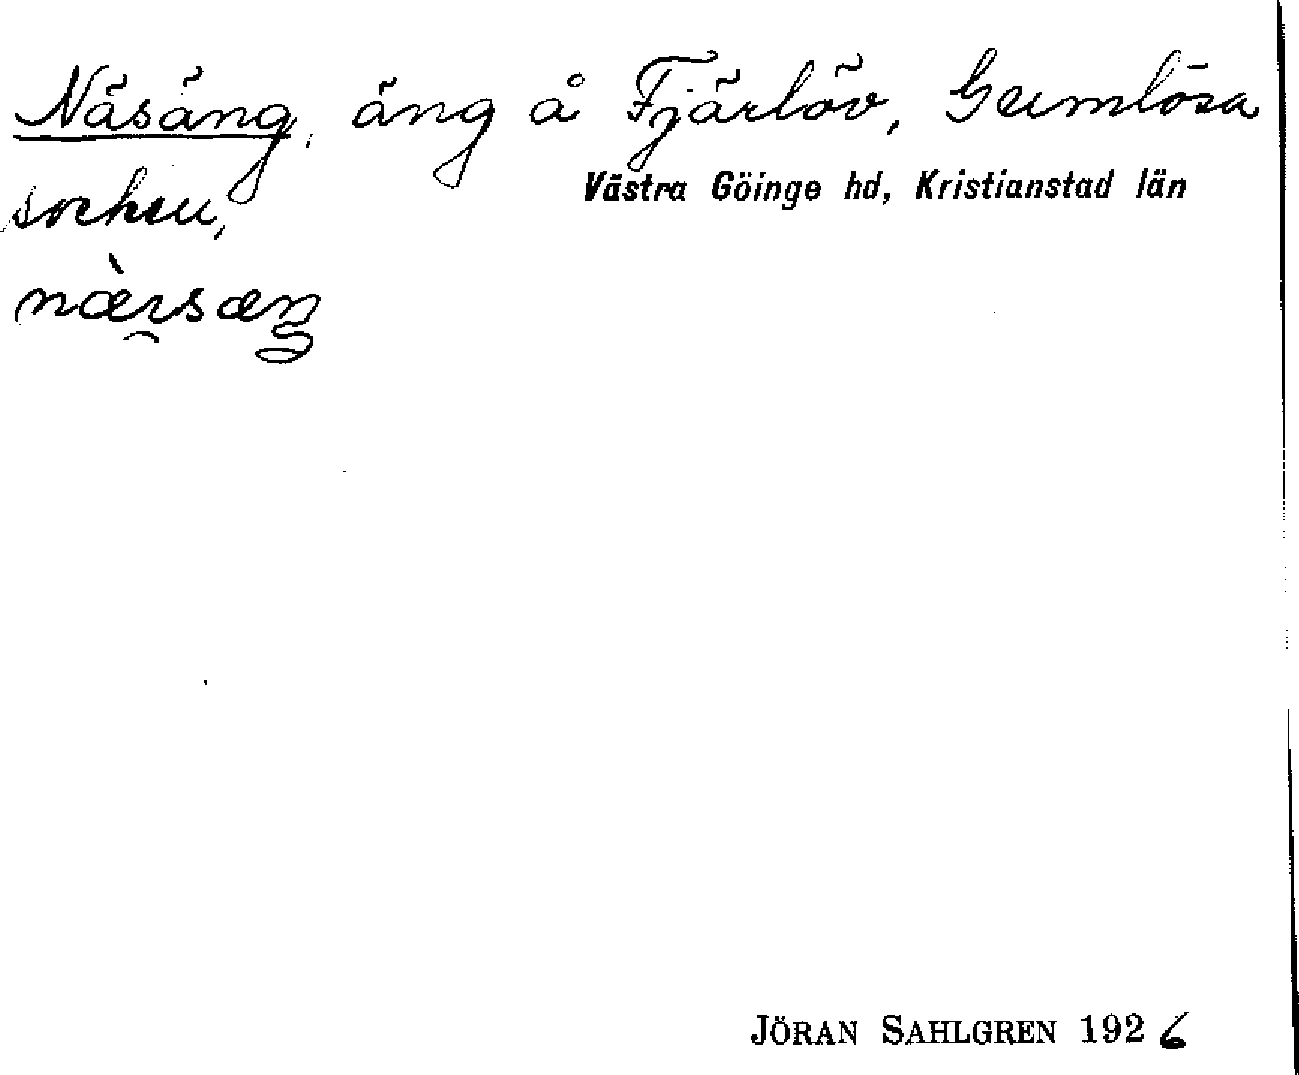 Näsäng, äng å Fjärlöv, Gumlösa
socken,
Västra Göinge hd, Kristianstad län
næ̀i̯sæŋ
JÖRAN SAHLGREN 1926